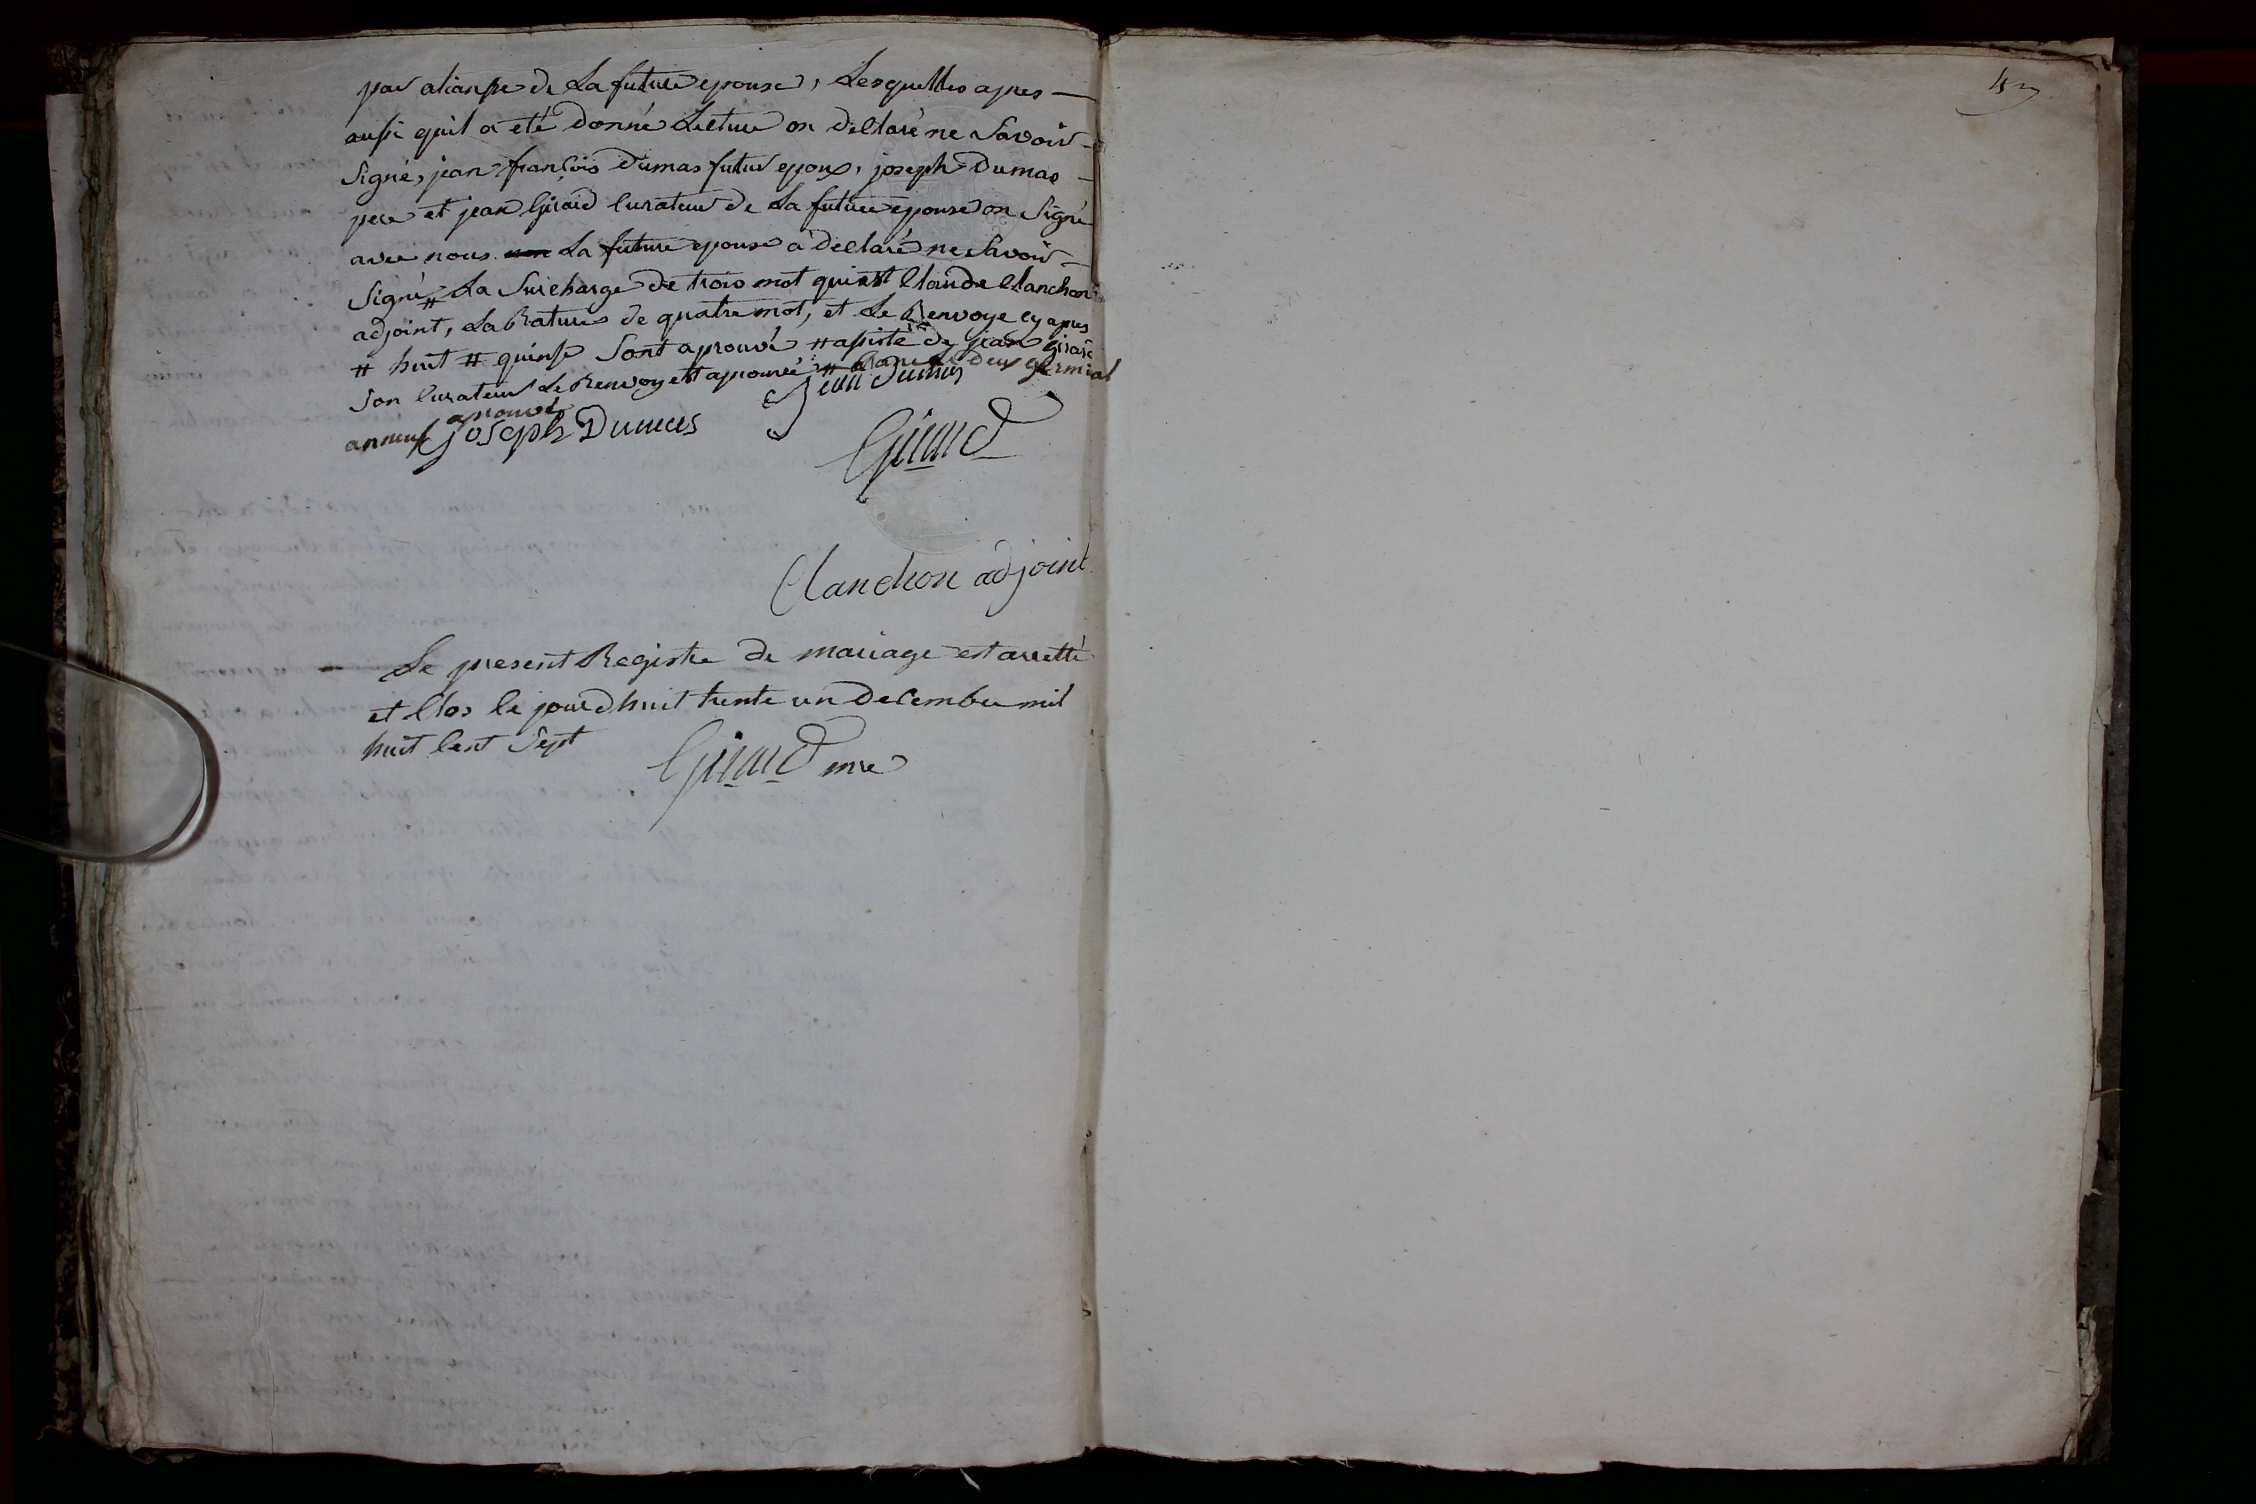 par alianse de La future epouse, Lesquelles apres
ausi quil a été donné Lecture on déclaré ne Savoir
Signé, jean françois Dumas futur epoux, joseph Dumas
pere et jean Girard curateur de La future epouse on Signé
avec nous La future epouse a déclaré ne Savoir
Signé # La Surcharge de trois mot qui est Claude Clanchon
adjoint, La Rature de quatre mot, et Le Renvoye cy apres
# huit # quinse Sont aprouvé # asisté de jean girard
Son curateur Le Renvoy est aprouvé # deux germinal
an neuf aprouvé
Jean Dumas
Joseph Dumas
Girard
Clanchon adjoint
Le present Registre de mariage est arretté
et Clos le jourdhuit trente un Decembre mil
huit Cent Sept
Girard mre